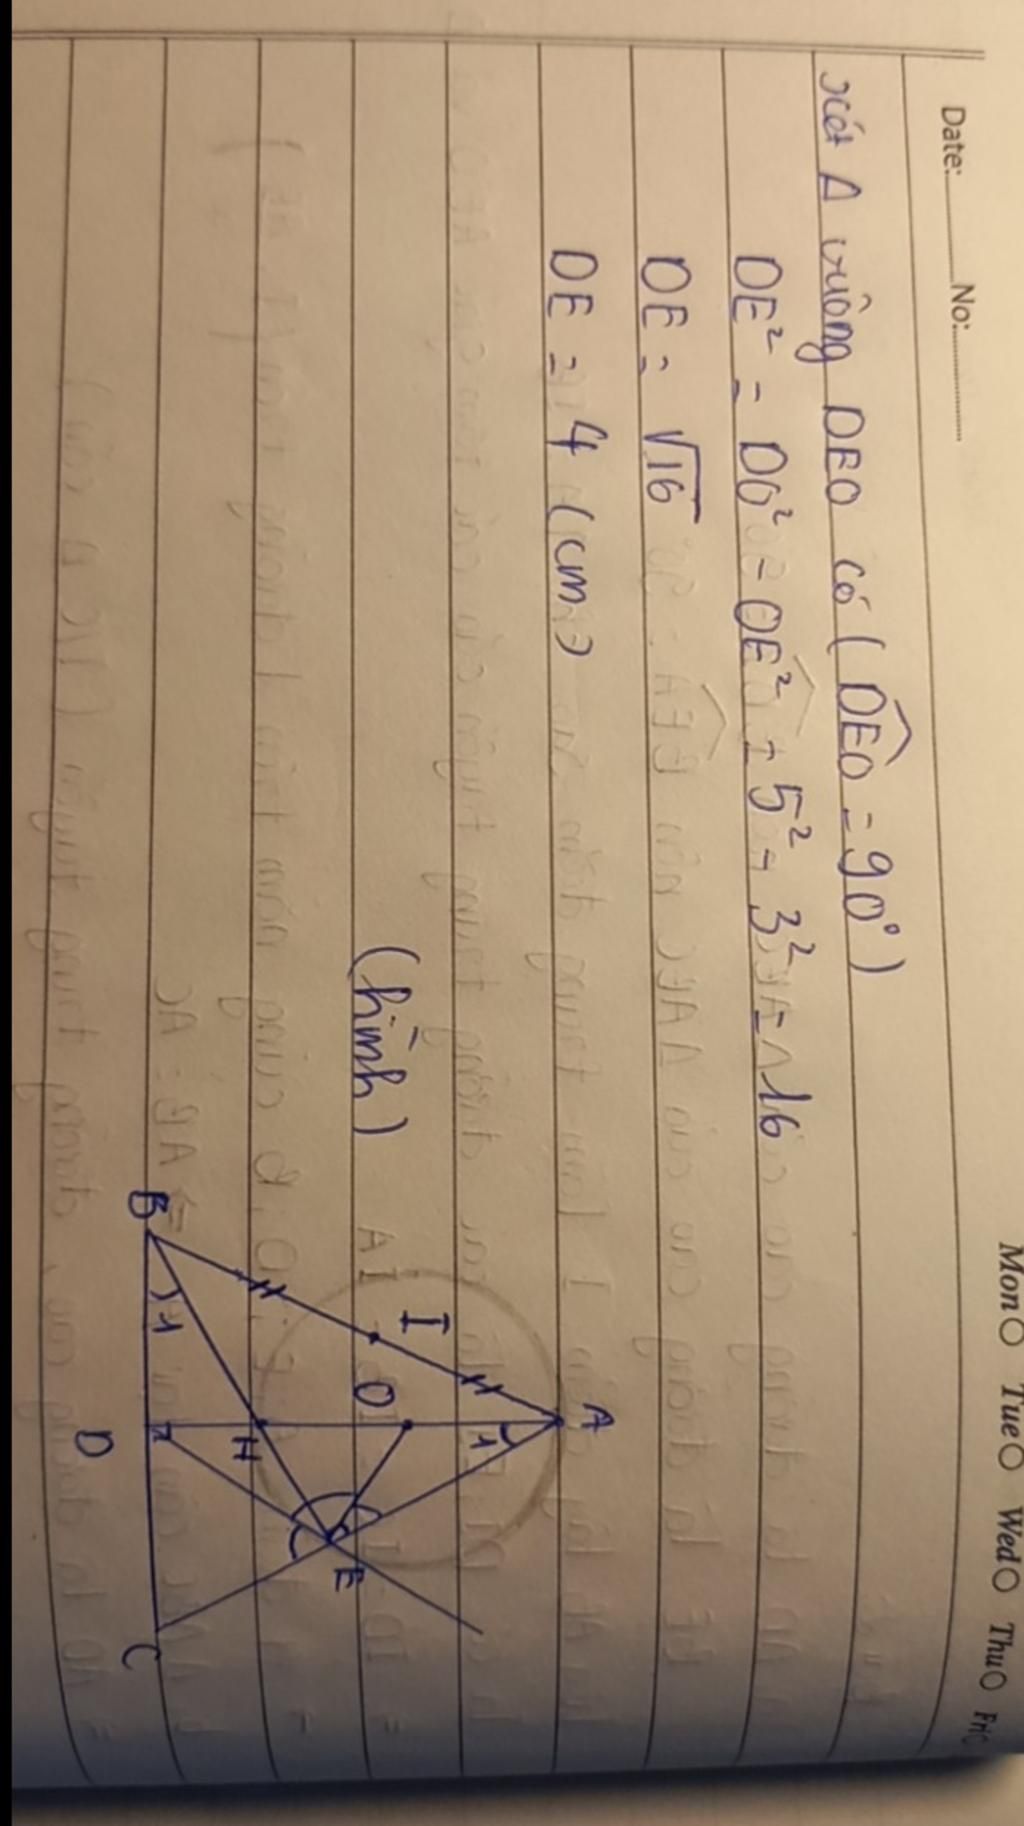 Date: No:
Mon Tue Wed Thu Fri
xét Δ vuông DEO có ( DEO = 90° )
DE² = DO² - OE² = 5² - 3² = 16
DE = √16
DE = 4 (cm)
(hình)
A
1
I
O
H
E
B
1
D
C